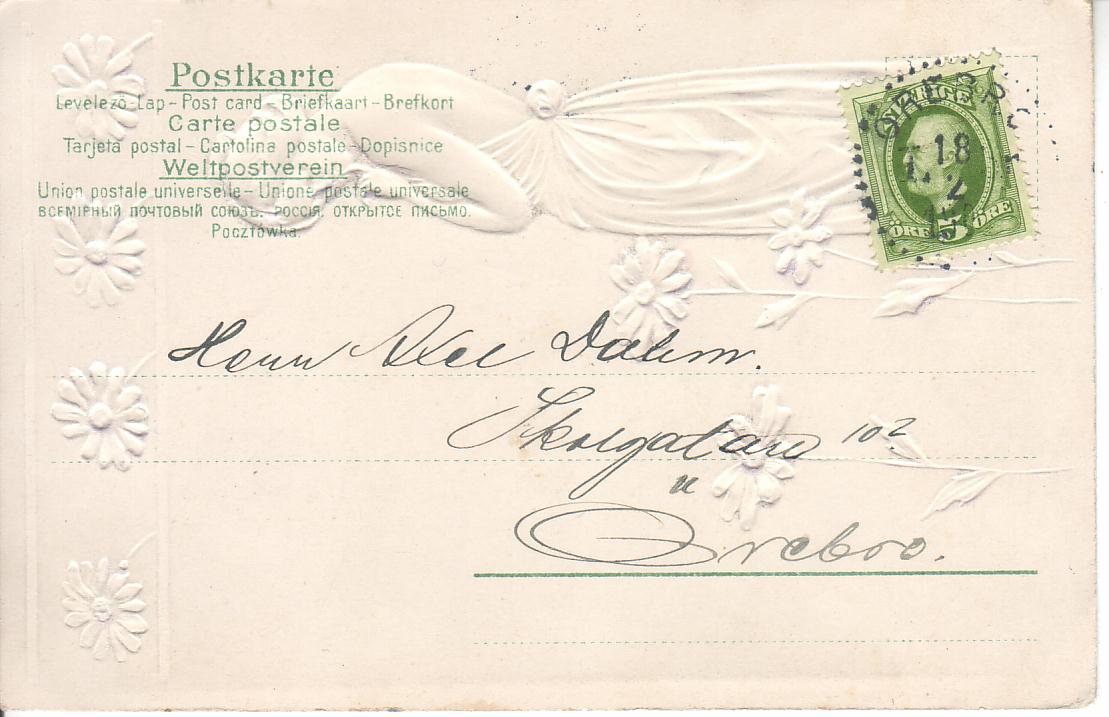 Postkarte
Levelező-Lap – Post card – Briefkaart – Brefkort
Carte postale
Tarjeta postal – Cartolina postale – Dopisnice
Weltpostverein
Union postale universelle – Unione postale universale
ВСЕМІРНЫЙ ПОЧТОВЫЙ СОЮЗЪ. РОССІЯ. ОТКРЫТОЕ ПИСЬМО.
Pocztówka.
SVERIGE
ÖRE 5 ÖRE
ÖREBRO
18
Herrn Axel Dahm.
Skolgatan 102
Örebro.